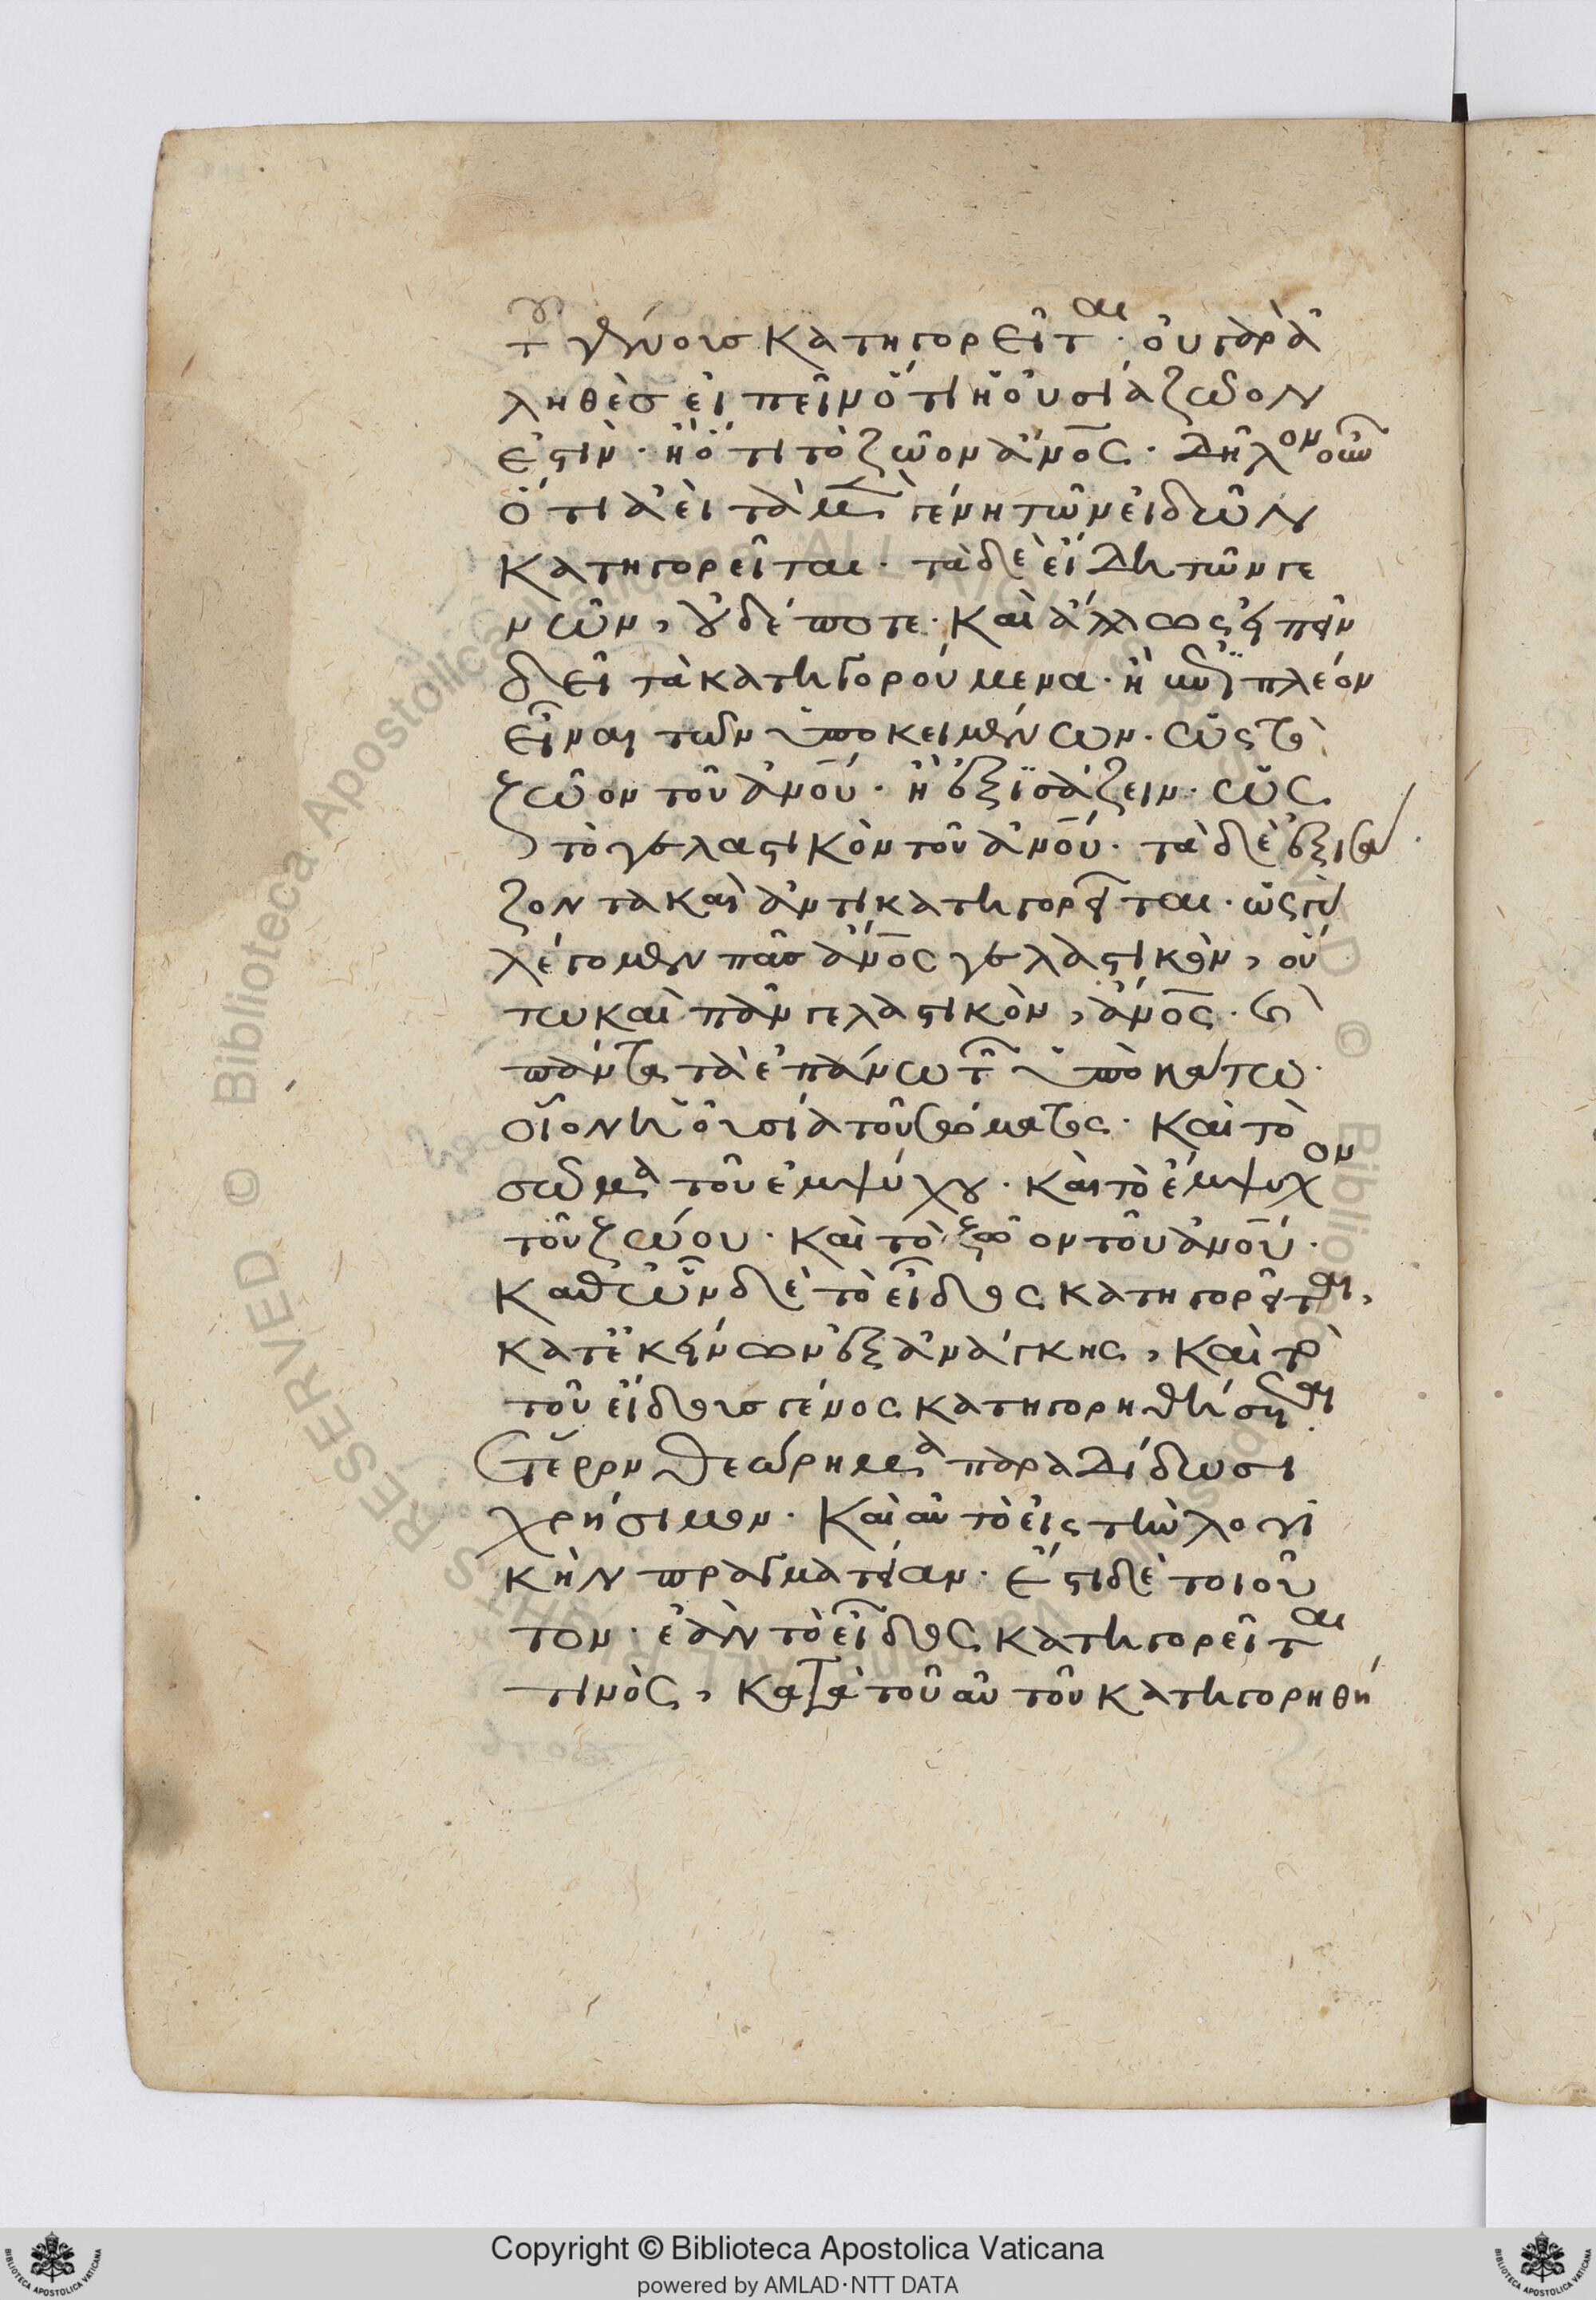 τοῦ γένους κατηγορεῖται· οὐ γὰρ ἀ
ληθὲς εἰπεῖν ὅτι ἡ οὐσία ζῶον
ἐστὶν· ἢ ὅτι τὸ ζῶον ἄνος· δῆλον οὖν
ὅτι ἀεὶ τὰ μὲν γένη τῶν εἰδῶν
κατηγορεῖται· τὰ δὲ εἴδη τῶν γε
νῶν, οὐδέποτε· καὶ ἄλλως εἰπεῖν
δεῖ τὰ κατηγορούμενα· ἢ ἐπὶ πλέον
εἶναι τῶν ὑποκειμένων· ὡς τὸ
ζῶον τοῦ ἀνου· ἢ ἐξισάζειν· ὡς
τὸ γελαστικὸν τοῦ ἀνου· τὰ δὲ ἐξισά
ζοντα καὶ ἀντικατηγορεῖται· ὥσπερ
λέγομεν πᾶς ἄνος γελαστικὸν, οὕ
τω καὶ πᾶν γελαστικὸν, ἄνος·
πάντα τὰ ἐπάνω τῶν ὑποκάτω·
οἷον ἡ οὐσία τοῦ σώματος· καὶ τὸ
σῶμα τοῦ ἐμψύχου· καὶ τὸ ἔμψυχον
τοῦ ζώου· καὶ τὸ ζῶον τοῦ ἀνου·
καθ' ὧν δὲ τὸ εἶδος κατηγορεῖται,
κατ' ἐκείνων ἐξ ἀνάγκης, καὶ τὸ
τοῦ εἴδους γένος κατηγορηθήσεται·
ἕτερον θεώρημα παραδίδωσι
χρήσιμον· καὶ αὐτὸ εἰς τὴν λογι
κὴν πραγματείαν· ἔστι δὲ τοιοῦ
τον· ἐὰν τὸ εἶδος κατηγορεῖται
τινὸς, κατὰ τοῦ αὐτοῦ κατηγορηθή
Copyright © Biblioteca Apostolica Vaticana
powered by AMLAD·NTT DATA